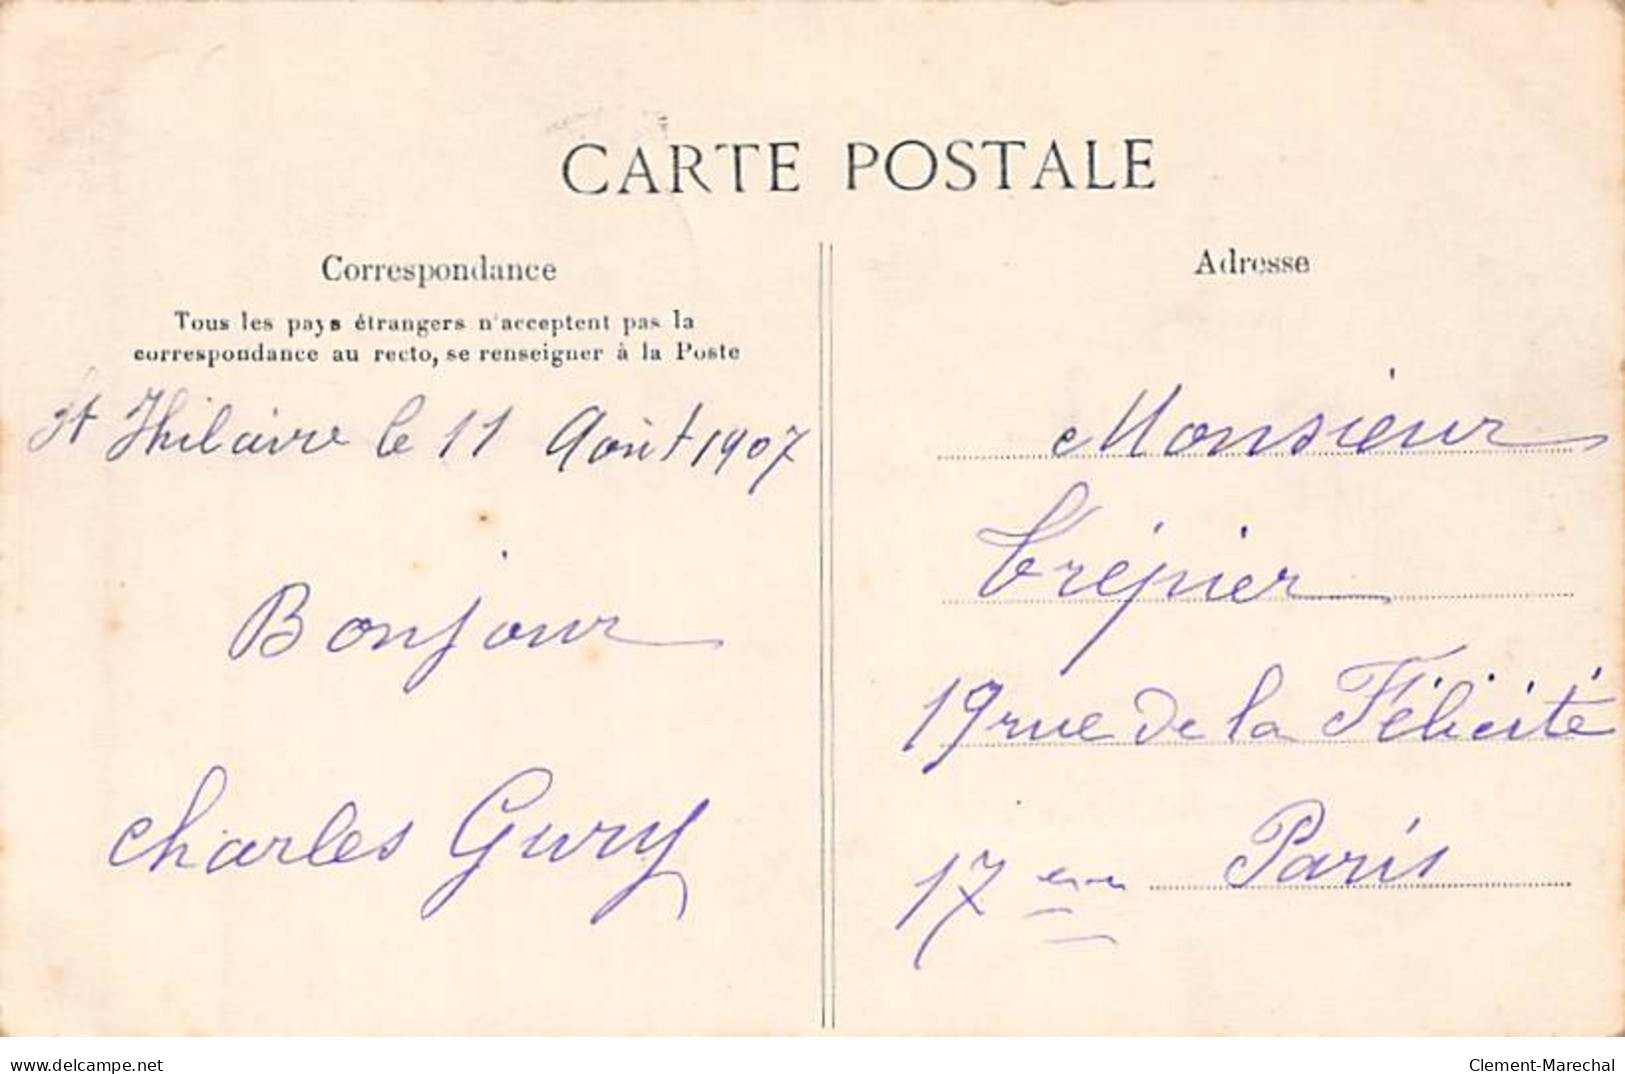 CARTE POSTALE
Correspondance
Tous les pays étrangers n'acceptent pas la
correspondance au recto, se renseigner à la Poste
St Hilaire le 11 Août 1907
Bonjour
Charles Gury
Adresse
Monsieur
Trépier
19 rue de la Félicité
17 eme Paris
www.delcampe.net
Clement-Marechal